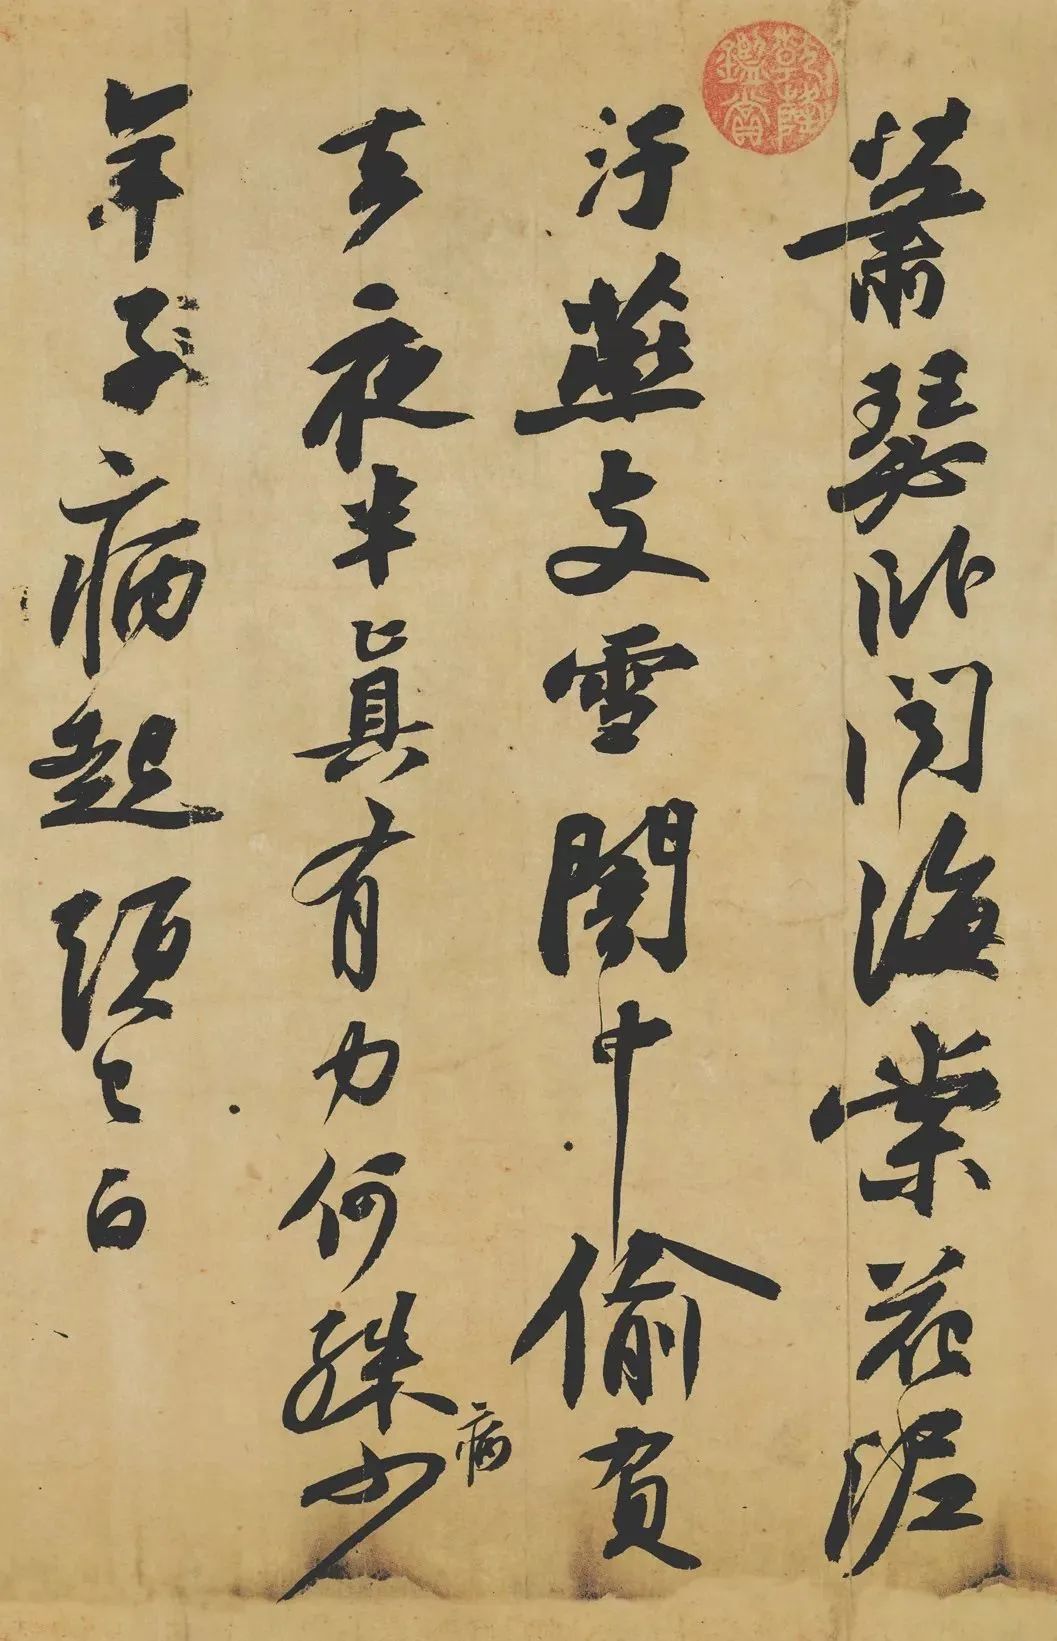 蕭瑟臥聞海棠花泥
乾隆鑑賞
汙燕支雪闇中偷負
去夜半真有力何殊病少
年子病起頭已白